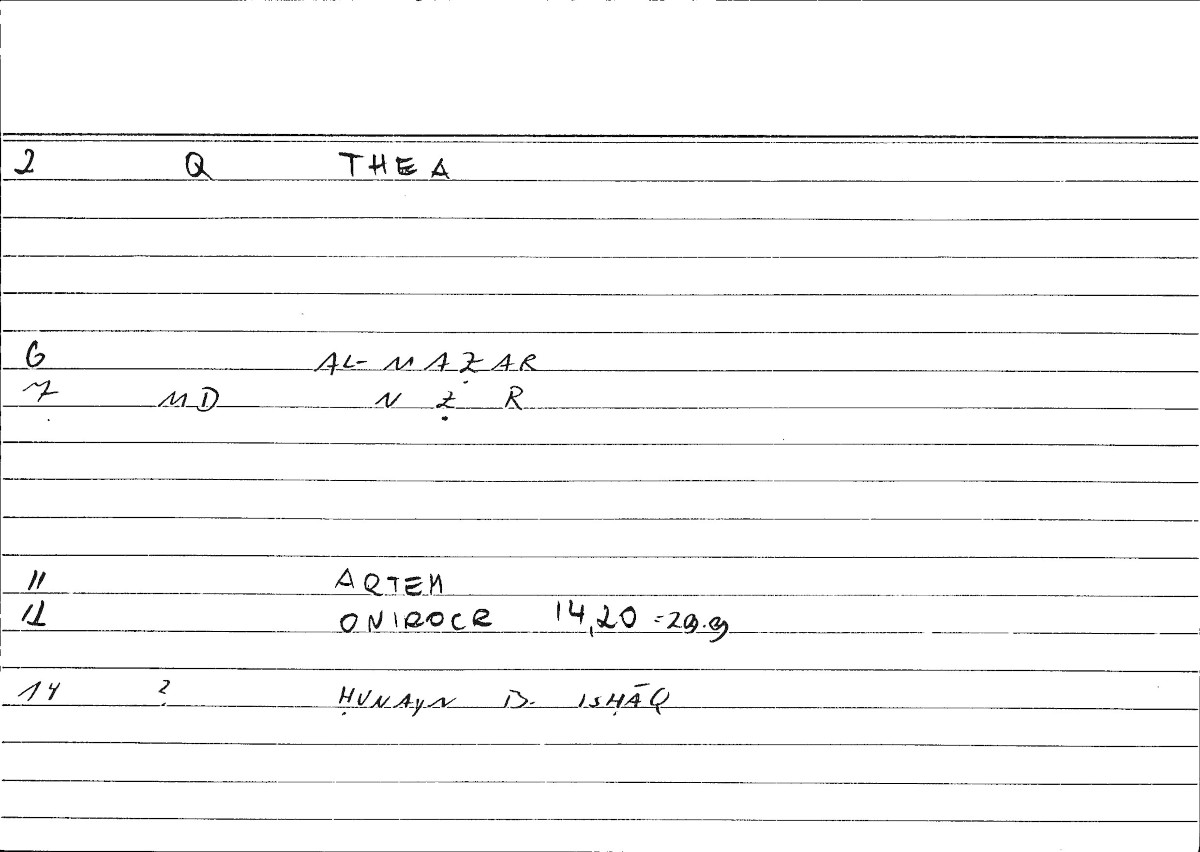 2 Q THEA
6 AL-MAẒAR
7 MD N Ẓ R
11 ARTEM
12 ONIROCR 14,20 = 29.9
14 ? ḤUNAYN B. ISḤĀQ